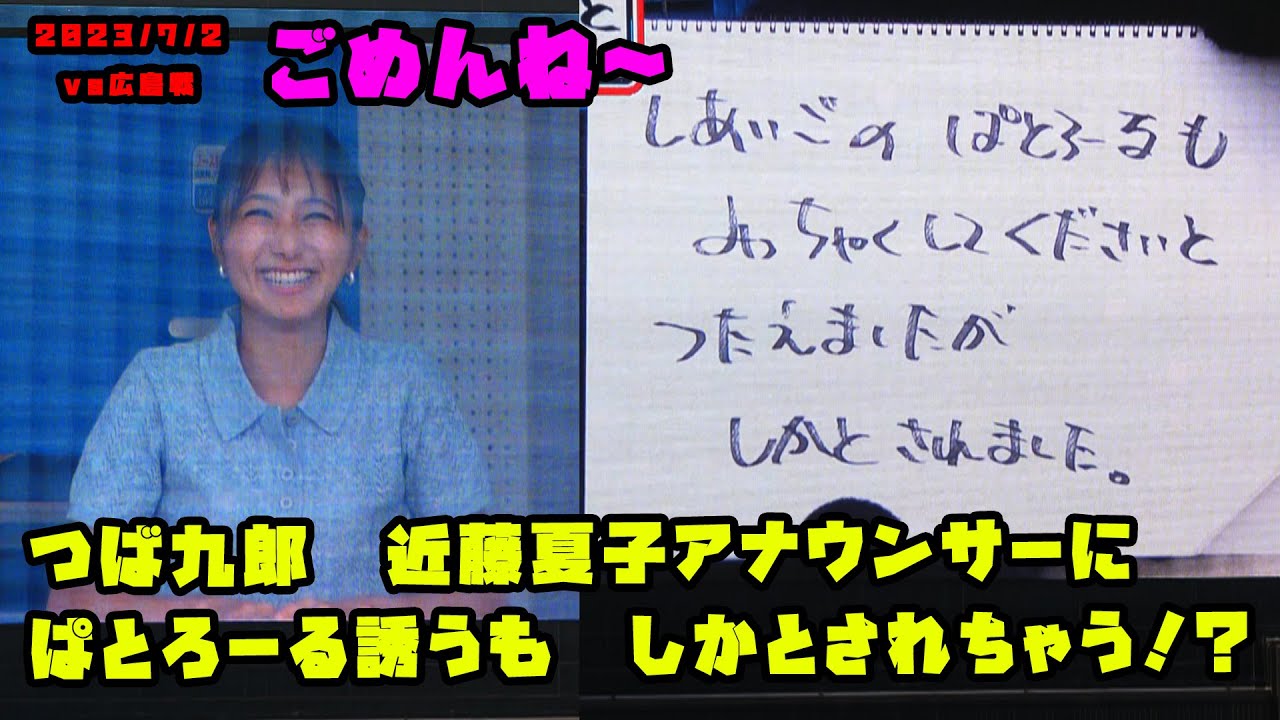 2023/7/2
vs広島戦
ごめんね~
と
しあいごの ぱとろーるも
みっちゃくしてくださいと
つたえましたが
しかとされました。
つば九郎 近藤夏子アナウンサーに
ぱとろーる誘うも しかとされちゃう!?